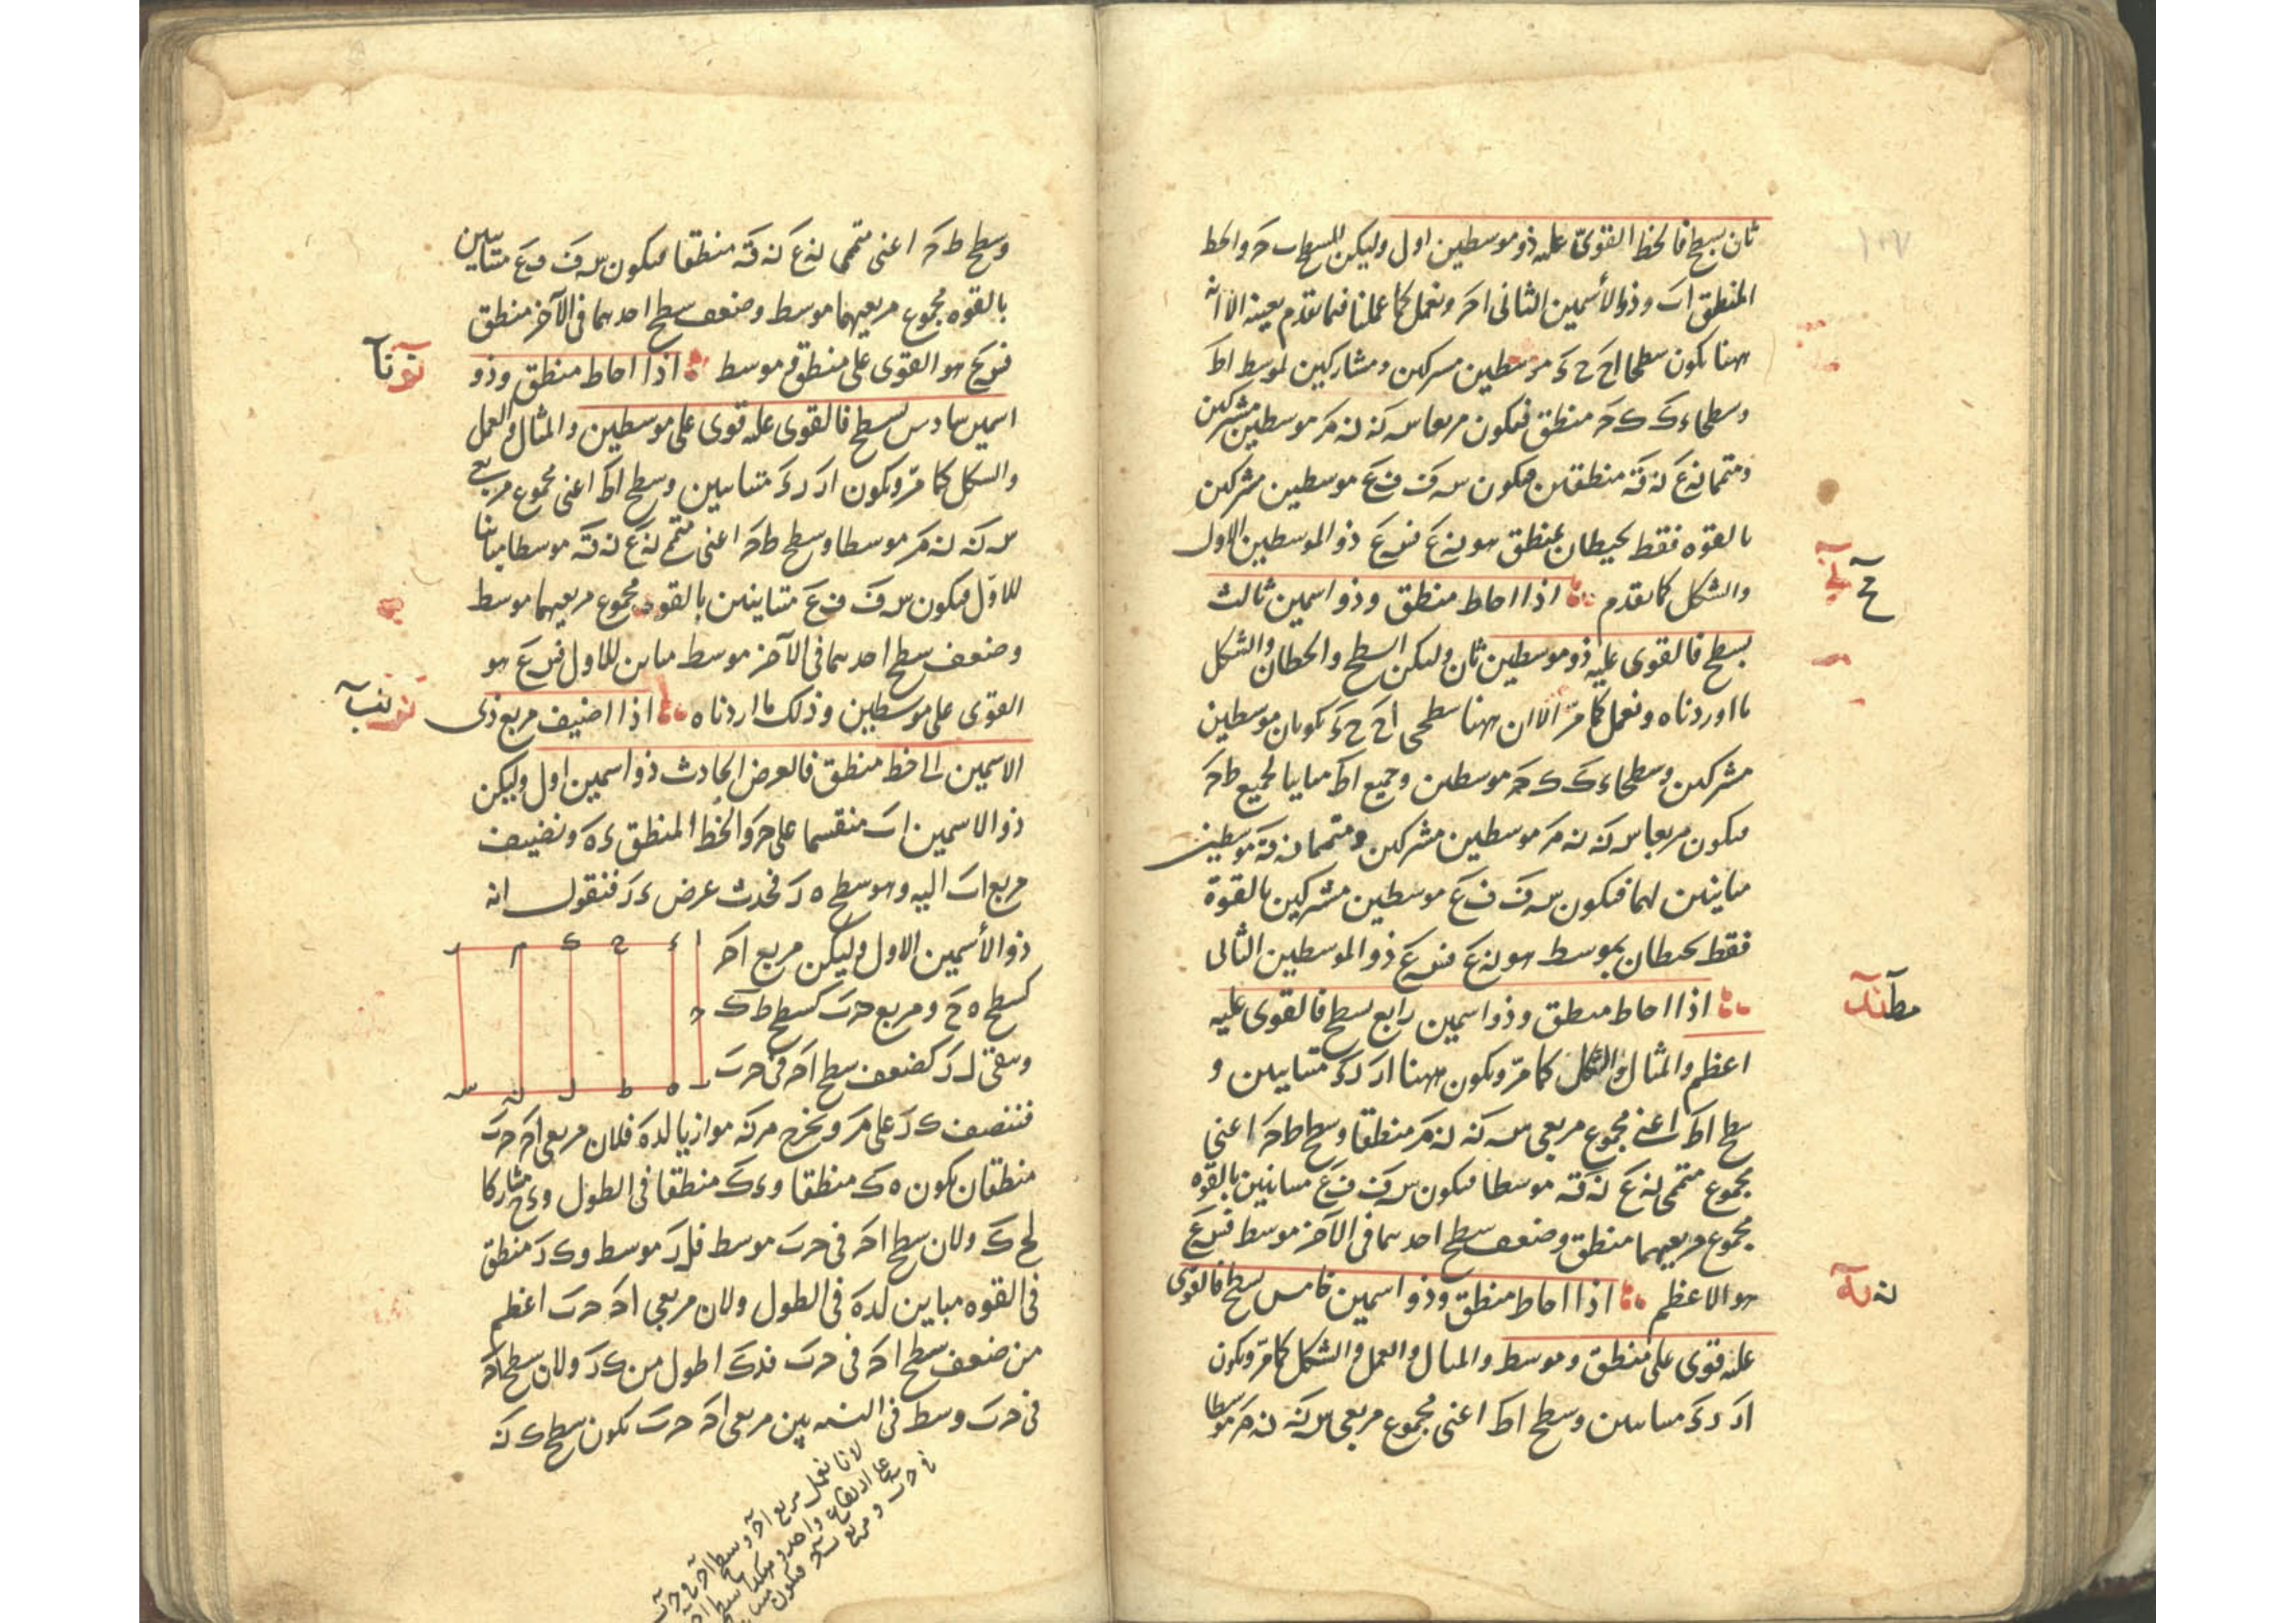 ١٠٧
ثان بسطح فالخط القوى عليه ذو موسطين اول وليكن السطح ب حَ والخط
المنطق اب وذو الأسمين الثانى احَ ونعمل كما عملنا فيما تقدم بعينه الا انه
ههنا يكون سطحا اح ح ءَ موسطين مشتركين ومشاركين لموسط اطَ
وسطحا ءكَ ك حَ منطق فيكون مربعا سه كَه نه مَر موسطين مشتركين
ومتمما نه عَ كه قَه منطقين فيكون سه فَ فَ عَ موسطين مشتركين
بالقوه فقط يحيطان بمنطق هو نه عَ فسه عَ ذو الموسطين الاول
والشكل كما تقدم اذا احاط منطق وذو اسمين ثالث
بسطح فالقوى عليه ذو موسطين ثان وليكن السطح والخطان والشكل
ما اوردناه ونعمل كما مرّ الا ان ههنا سطحى اح ح ءَ يكونان موسطين
مشتركين وسطحا ءكَ ك حَ موسطين وجميع اطَ مباينا لجميع ط حَ
فيكون مربعا سه كَه نه مَر موسطين مشتركين ومتمما نه قَه موسطين
مباينين لهما فيكون سه فَ فَ عَ موسطين مشتركين بالقوة
فقط يحيطان بموسط هو نه عَ فسه عَ ذو الموسطين الثانى
اذا احاط منطق وذو اسمين رابع بسطح فالقوى عليه
اعظم والمثال والشكل كما مرّ ويكون ههنا ار رءَ متباينين و
سطح اطَ اعنى مجموع مربعى سه كَه نه مَر منطقا وسطح ط حَ اعنى
مجموع متممى نه عَ كه قَه موسطا فيكون سه فَ فَ عَ متباينين بالقوه
مجموع مربعيهما منطق وضعف سطح احدهما فى الآخر موسط فسه عَ
هو الاعظم اذا احاط منطق وذو اسمين خامس بسطح فالقوى
عليه قوى على منطق وموسط والمثال والعمل والشكل كما مرّ ويكون
ار رءَ متباينين وسطح اطَ اعنى مجموع مربعى سه كَه نه مَر موسطا
وسطح ط حَ اعنى متممى نه عَ كه قَه منطقا فيكون سه فَ فَ عَ متباينين
بالقوه مجموع مربعيهما موسط وضعف سطح احدهما فى الآخر منطق
فسه عَ هو القوى على منطق وموسط اذا احاط منطق وذو
اسمين سادس بسطح فالقوى عليه قوى على موسطين والمثال والعمل
والشكل كما مرّ ويكون ار رءَ متباينين وسطح اطَ اعنى مجموع مربعى
سه كَه نه مَر موسطا وسطح ط حَ اعنى متممى نه عَ كه قَه موسطا مباينا
للاول فيكون سه فَ فَ عَ متباينين بالقوه مجموع مربعيهما موسط
وضعف سطح احدهما فى الآخر موسط مباين للاول فسه عَ هو
القوى على موسطين وذلك ما اردناه اذا اضيف مربع ذى
الاسمين الى خط منطق فالعرض الحادث ذو اسمين اول وليكن
ذو الاسمين اب منقسما على حَ والخط المنطق ءه ونضيف
مربع اب اليه وهو سطح ه رَ فيحدث عرض ءر فنقول انه
ذو الأسمين الاول وليكن مربع احَ
كسطح ه حَ ومربع حب كسطح ط كَ
ويبقى ل رَ كضعف سطح احَ فى حب
فننصف ك رَ على مَ ونخرج م نه موازيا لءه فلان مربعى احَ حب
منطقان يكون ه كَ منطقا وء كَ منطقا فى الطول وء ح مشاركا
لح كَ ولان سطح احَ فى حب موسط فل رَ موسط وك رَ منطق
فى القوه مباين لءه فى الطول ولان مربعى احَ حب اعظم
من ضعف سطح احَ فى حب فءكَ اطول من ك رَ ولان سطح احَ
فى حب وسط فى النسبه بين مربعى احَ حب يكون سطح ك نه
لانا نعمل مربع احَ وسطح احَ فى حب